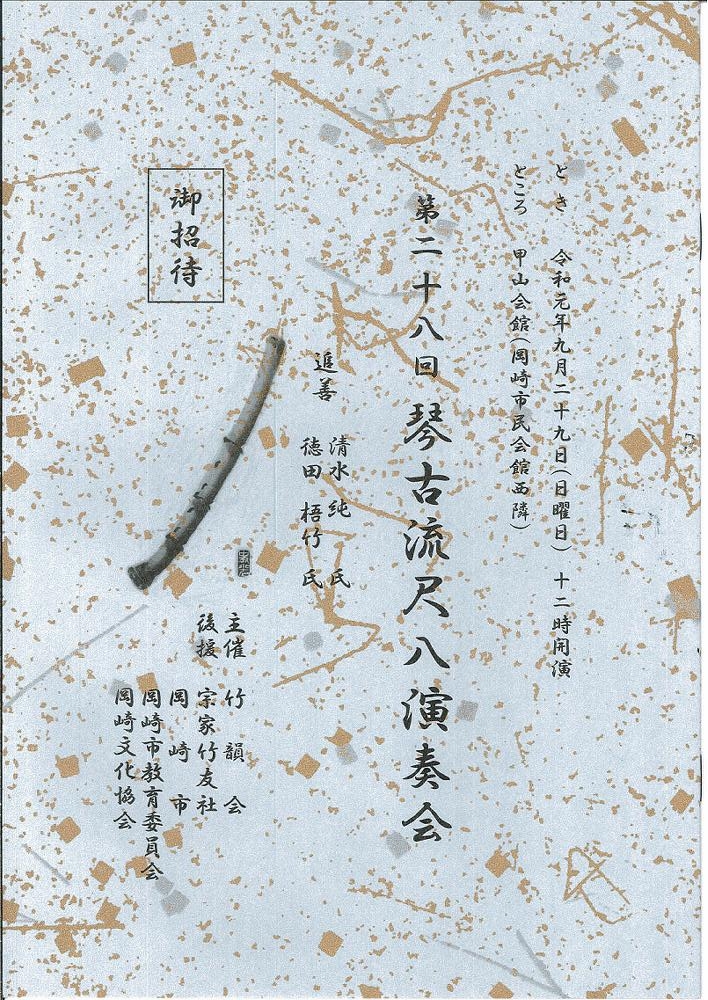 とき　令和元年九月二十九日（日曜日）　十二時開演
ところ　甲山会館（岡崎市民会館西隣）
第二十八回　琴古流尺八演奏会
追善　清水　純　氏
徳田　梧竹　氏
御招待
主催　竹韻会
後援　宗家竹友社
岡崎市
岡崎市教育委員会
岡崎文化協会